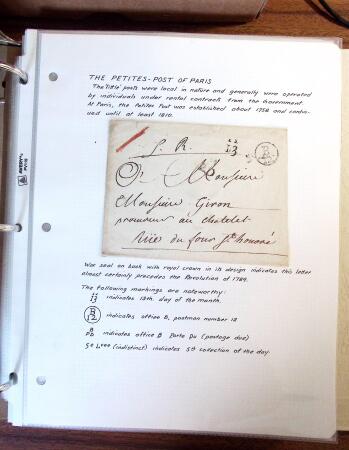 THE PETITES-POST OF PARIS
The "little" posts were local in nature and generally were operated
by individuals under rental contracts from the Government.
At Paris, the Petites Post was established about 1758 and contin-
ued until at least 1810.
P. P.
13
B
12
Monsieur
Monsieur Giron
procureur au chatelet
Rüe du four St honoré
Wax seal on back with royal crown in its design indicates this letter
almost certainly precedes the Revolution of 1789.
The following markings are noteworthy:
13 indicates 13th. day of the month.
B
12 indicates office B, postman number 12
B
PD indicates office B Porte Du (postage due)
5e Lvee (indistinct) indicates 5th collection of the day.